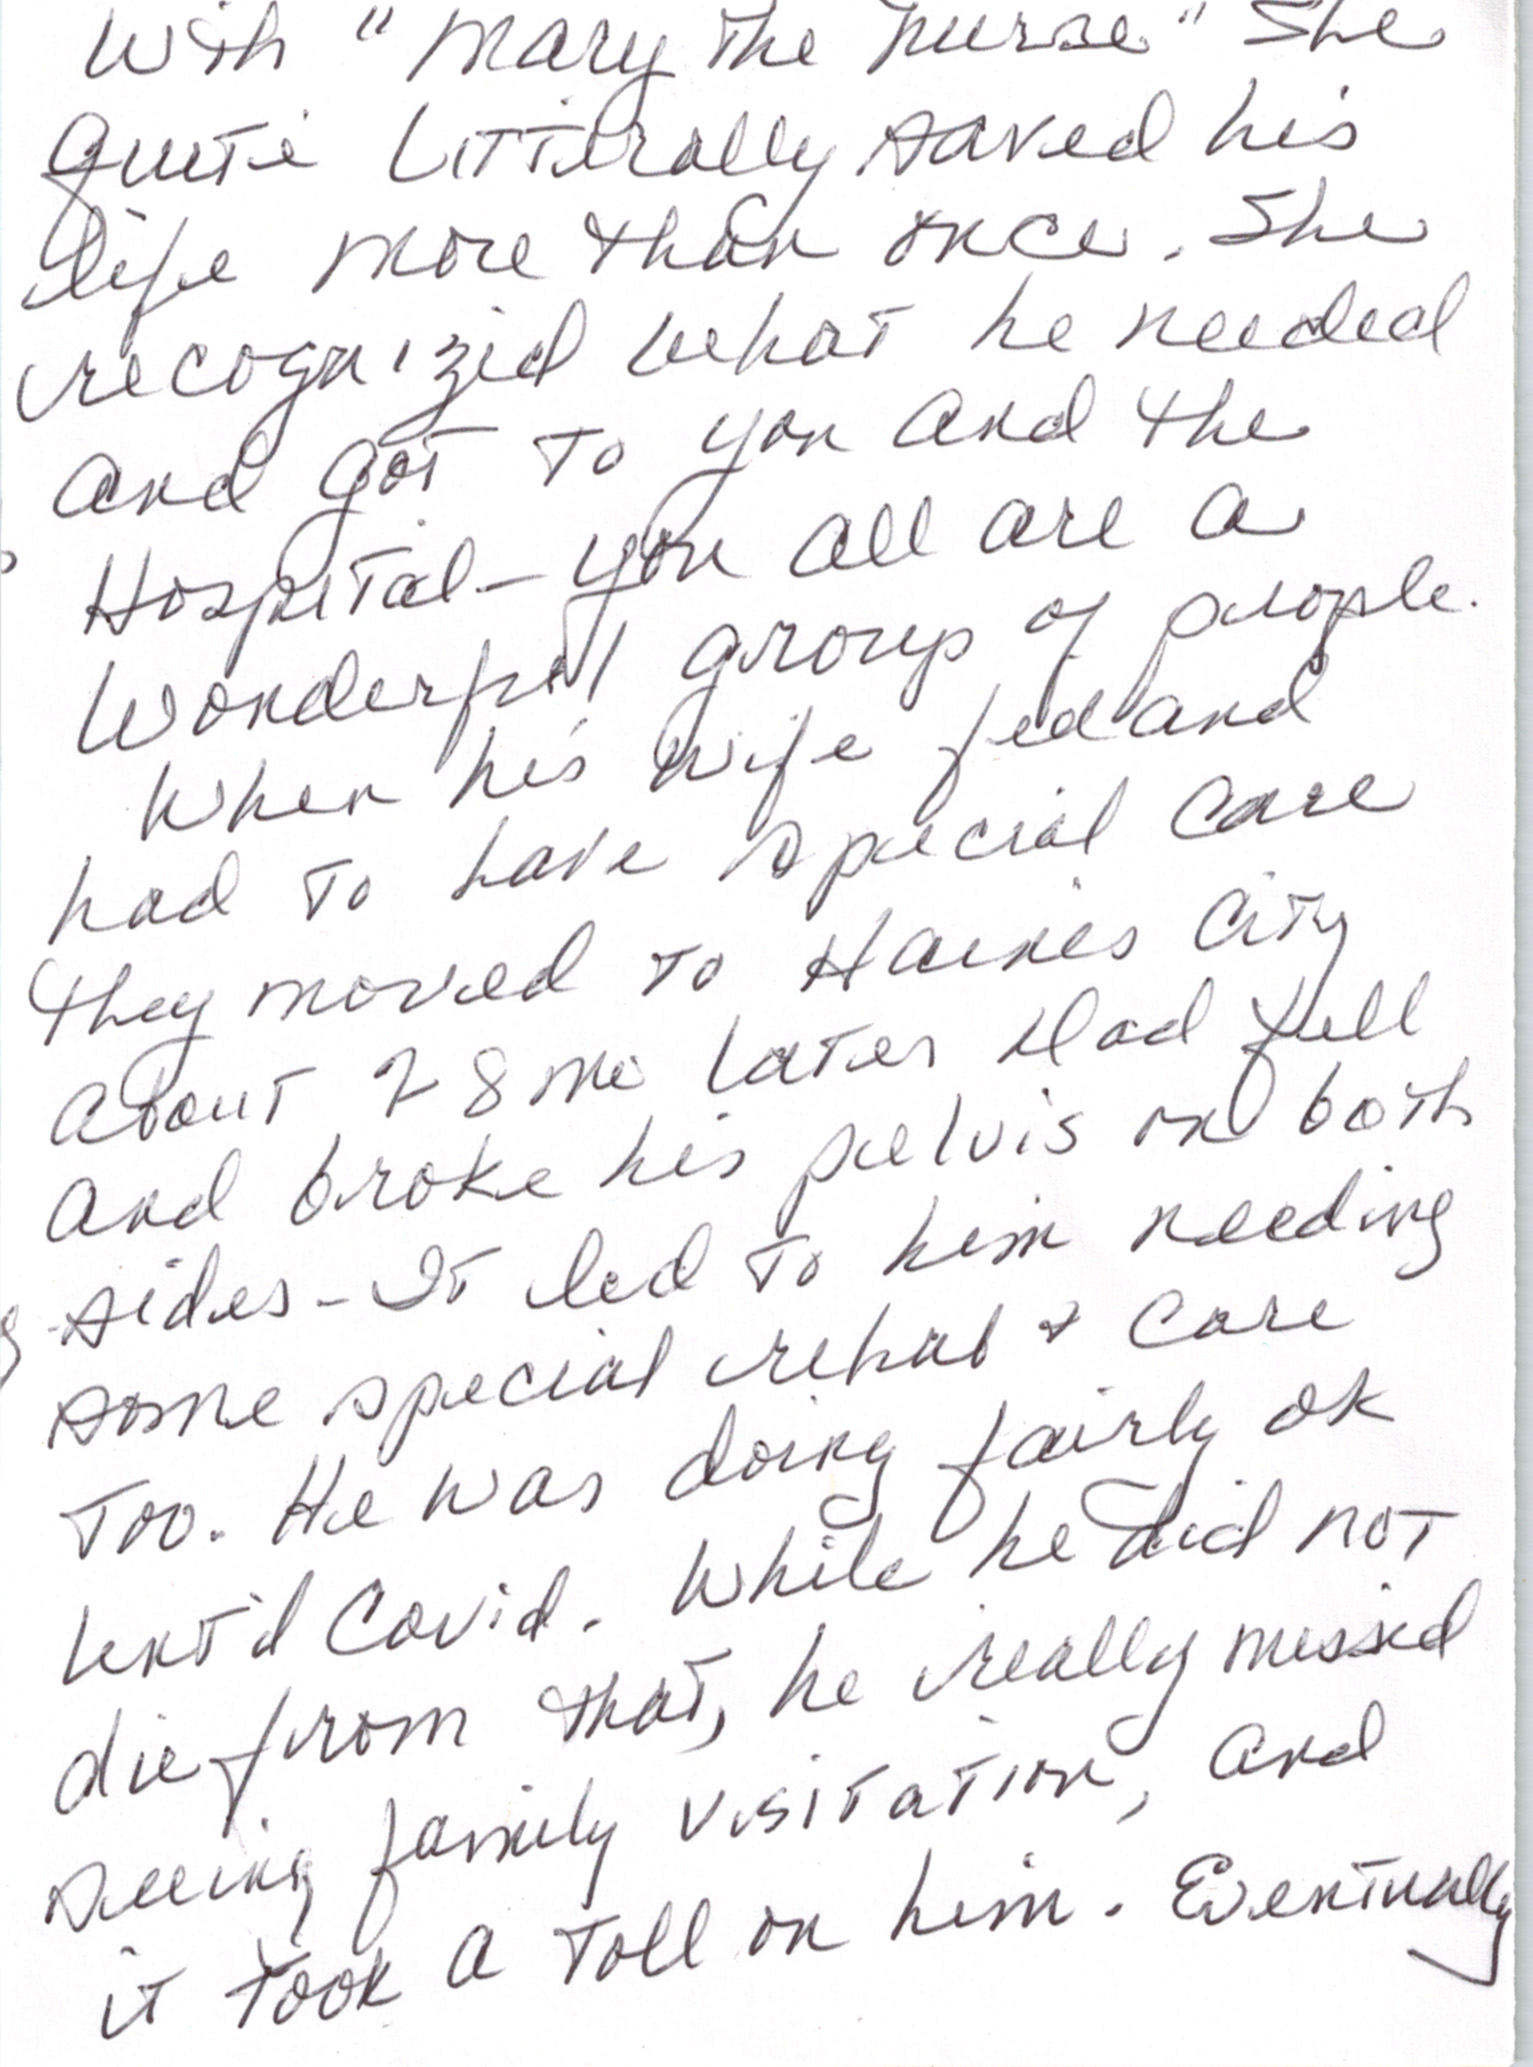 With "Mary the Nurse" She
Quite Litterally saved his
life more than once. She
recognized what he needed
and got to you and the
Hospital - you all are a
Wonderful group of people.
When his wife fell and
had to have special care
they moved to Haines City
About 8 mo later Dad fell
and broke his pelvis on both
sides - It led to him needing
some special rehab & care
too. He was doing fairly ok
until Covid. While he did not
die from that, he really missed
seeing family visitation, and
it took a toll on him. Eventually